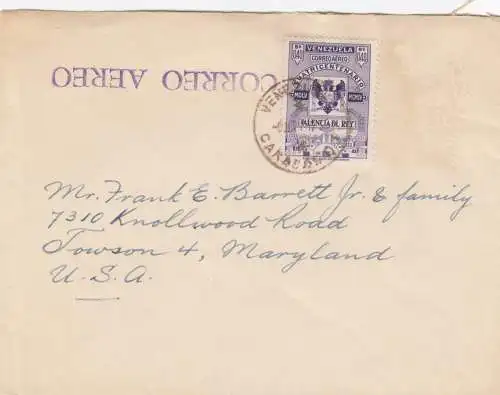 CORREO AEREO
VENEZUELA
CORREO AEREO
CUATRICENTENARIO
VALENCIA DEL REY
CARACAS
Mr. Frank E. Barrett Jr. & family
7310 Knollwood Road
Towson 4, Maryland
U. S. A.